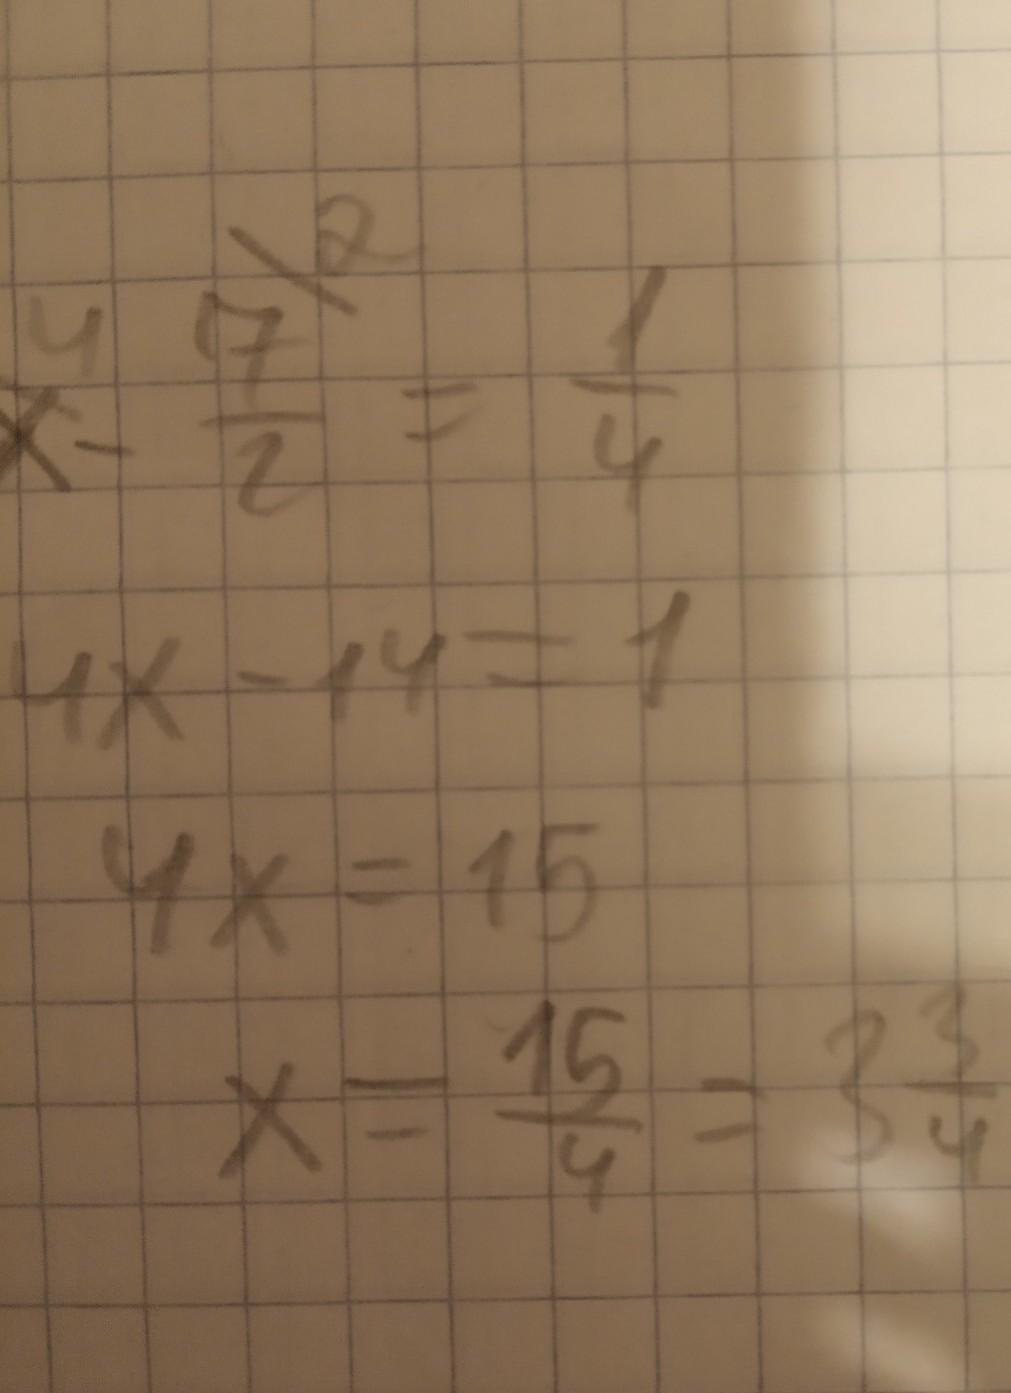 x⁴ - 7/2 \2 = 1/4
4x - 14 = 1
4x = 15
x = 15/4 = 3 3/4